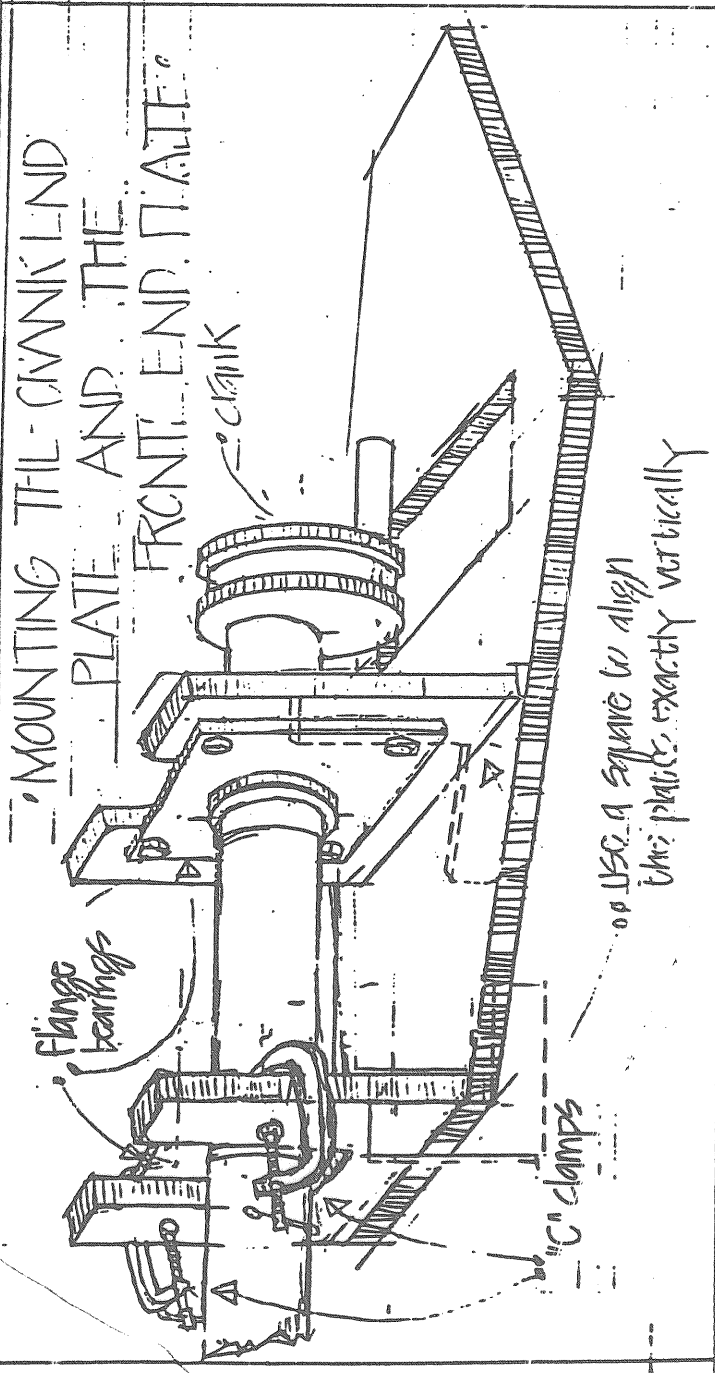 MOUNTING THE CRANK END
PLATE AND THE
FRONT END PLATE
crank
flange
bearings
"C" clamps
use a square to align
this plate exactly vertically